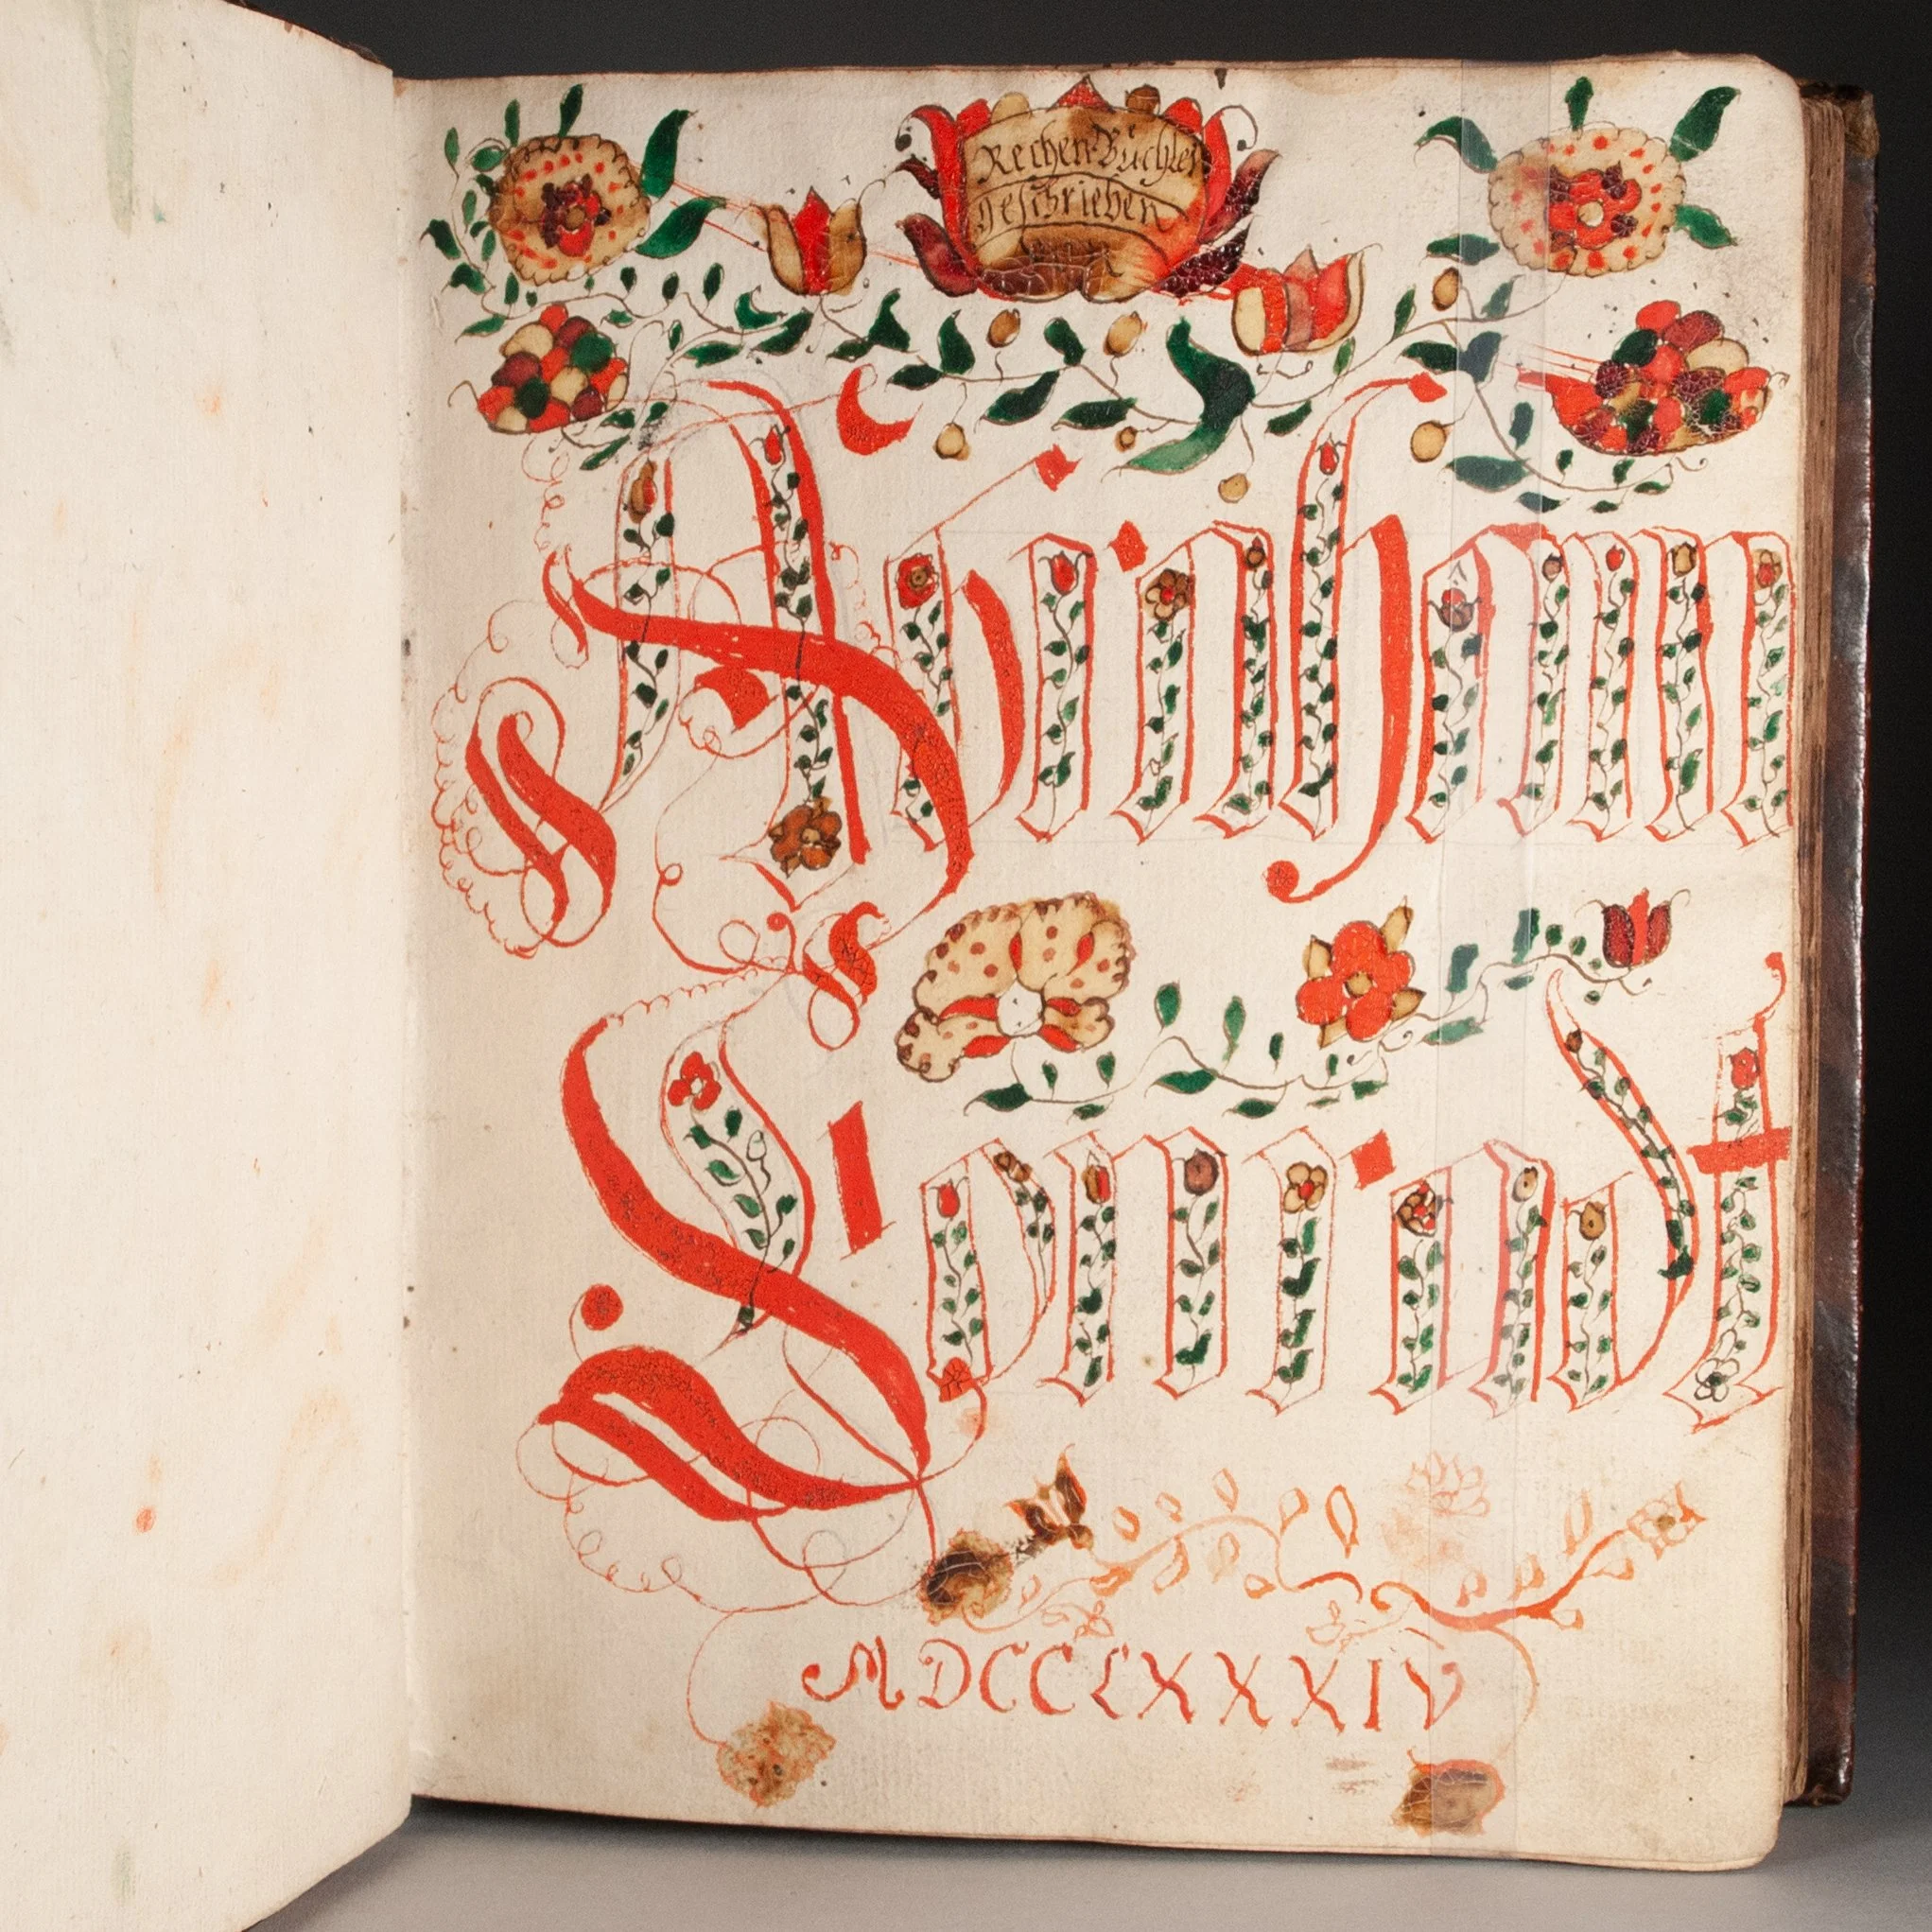 Rechen Büchlein
geschrieben
Abraham
Conradt
MDCCLXXXIV